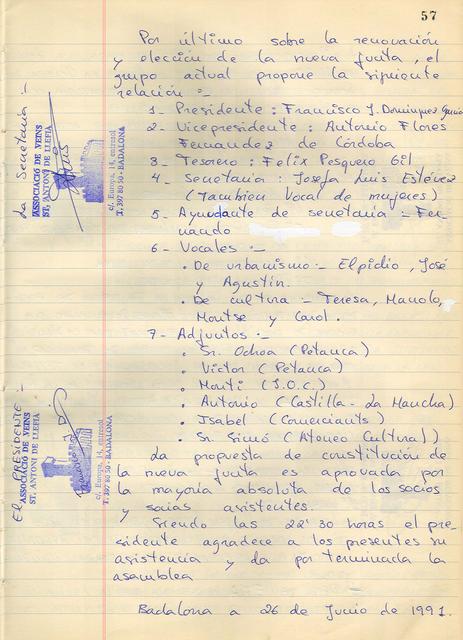 57
Por último sobre la renovación
y elección de la nueva junta, el
grupo actual propone la siguiente
relación :-
1- Presidente : Francisco J. Dominguez
2- Vicepresidente : Antonio Flores
Fernandez de Córdoba
3- Tesorero : Felix Pesquero Gil
4- Secretaria : Josefa Luis Estévez
(Tambien Vocal de mujeres)
5- Ayudante de secretaria :- Fer-
nando
6- Vocales :-
• De urbanismo :- Elpidio, José
y Agustín.
• De cultura :- Teresa, Manolo,
Montse y Carol.
7- Adjuntos :-
• Sr. Ochoa (Petanca)
• Victor (Petanca)
• Monti (J.O.C.)
• Antonio (Castilla - La Mancha)
• Isabel (Comerciants)
• Sr. Simó (Ateneo Cultural)
La propuesta de constitución de
la nueva junta es aprovada por
la mayoría absoluta de los socios
y socias asistentes.
Siendo las 22'30 horas el pre-
sidente agradece a los presentes su
asistencia y da por terminada la
asamblea
Badalona a 26 de Junio de 1991.
La Secretaria :-
ASSOCIACIÓ DE VEINS
ST. ANTONI DE LLEFIA
c/. Europa, 14, entresol
T. 397 80 50 - BADALONA
El PRESIDENTE :-
ASSOCIACIÓ DE VEINS
ST. ANTONI DE LLEFIA
c/. Europa, 14, entresol
T. 397 80 50 - BADALONA